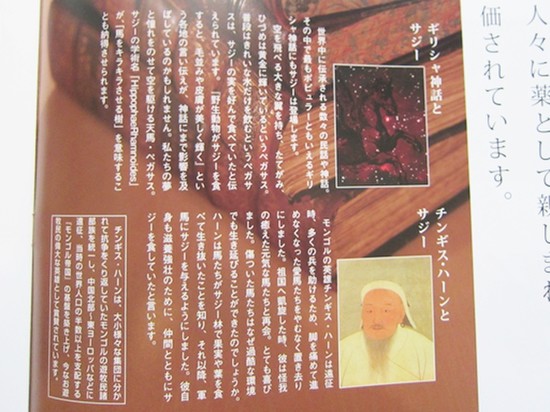 人々に薬として親しまれ
価されています。
ギリシャ神話と
サジー
世界中に伝承される数々の民話や神話。
その中で最もポピュラーともいえるギリ
シャ神話にもサジーは登場します。
空を飛べる大きな翼を持ち、たてがみ、
ひづめは黄金に輝いているというペガサス。
普段はきれいな水だけを飲むというペガサ
スは、サジーの実を好んで食べていたと伝
えられています。「野生動物がサジーを食
すると、毛並みや皮膚が美しく輝く」とい
う各地の言い伝えが、神話にまで影響を及
ぼしているのかもしれません。私たちの夢
と憧れをのせて空を駆ける天馬・ペガサス。
サジーの学術名「HippophaeRhamnoides」
が、「馬をキラキラさせる樹」を意味するこ
とも納得させられます。
チンギス・ハーンと
サジー
モンゴルの英雄チンギス・ハーンは遠征
時、多くの兵を助けるため、脚を痛めて進
めなくなった愛馬たちをやむなく置き去り
にしました。祖国へ凱旋した時、彼は怪我
の癒えた元気な馬たちと再会。とても喜び
ました。傷ついた馬たちはなぜ過酷な環境
でも生き延びることができたのでしょうか。
ハーンは馬たちがサジー林で果実や葉を食
べて生き抜いたことを知り、それ以降、軍
馬にサジーを与えるようにしました。彼自
身も滋養強壮のために、仲間とともにサ
ジーを食していたと言います。
チンギス・ハーンは、大小様々な集団に分か
れて抗争をくり返していたモンゴルの遊牧民諸
部族を統一し、中国北部〜東ヨーロッパなどに
遠征。当時の世界人口の半数以上を支配する
「モンゴル帝国」の基盤を築き上げ、今なお遊
牧民の偉大な英雄として賞賛されています。